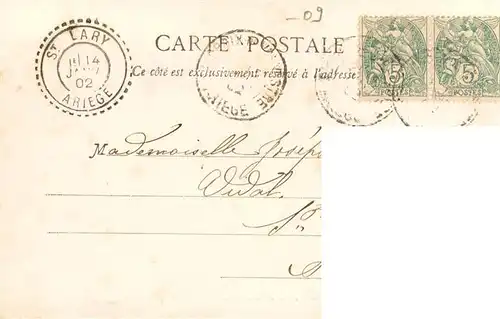 09
CARTE POSTALE
Ce côté est exclusivement réservé à l'adresse
ST LARY
14
02
ARIEGE
ARIEGE
5 5
POSTES POSTES
Mademoiselle Joséph
Vidal
St